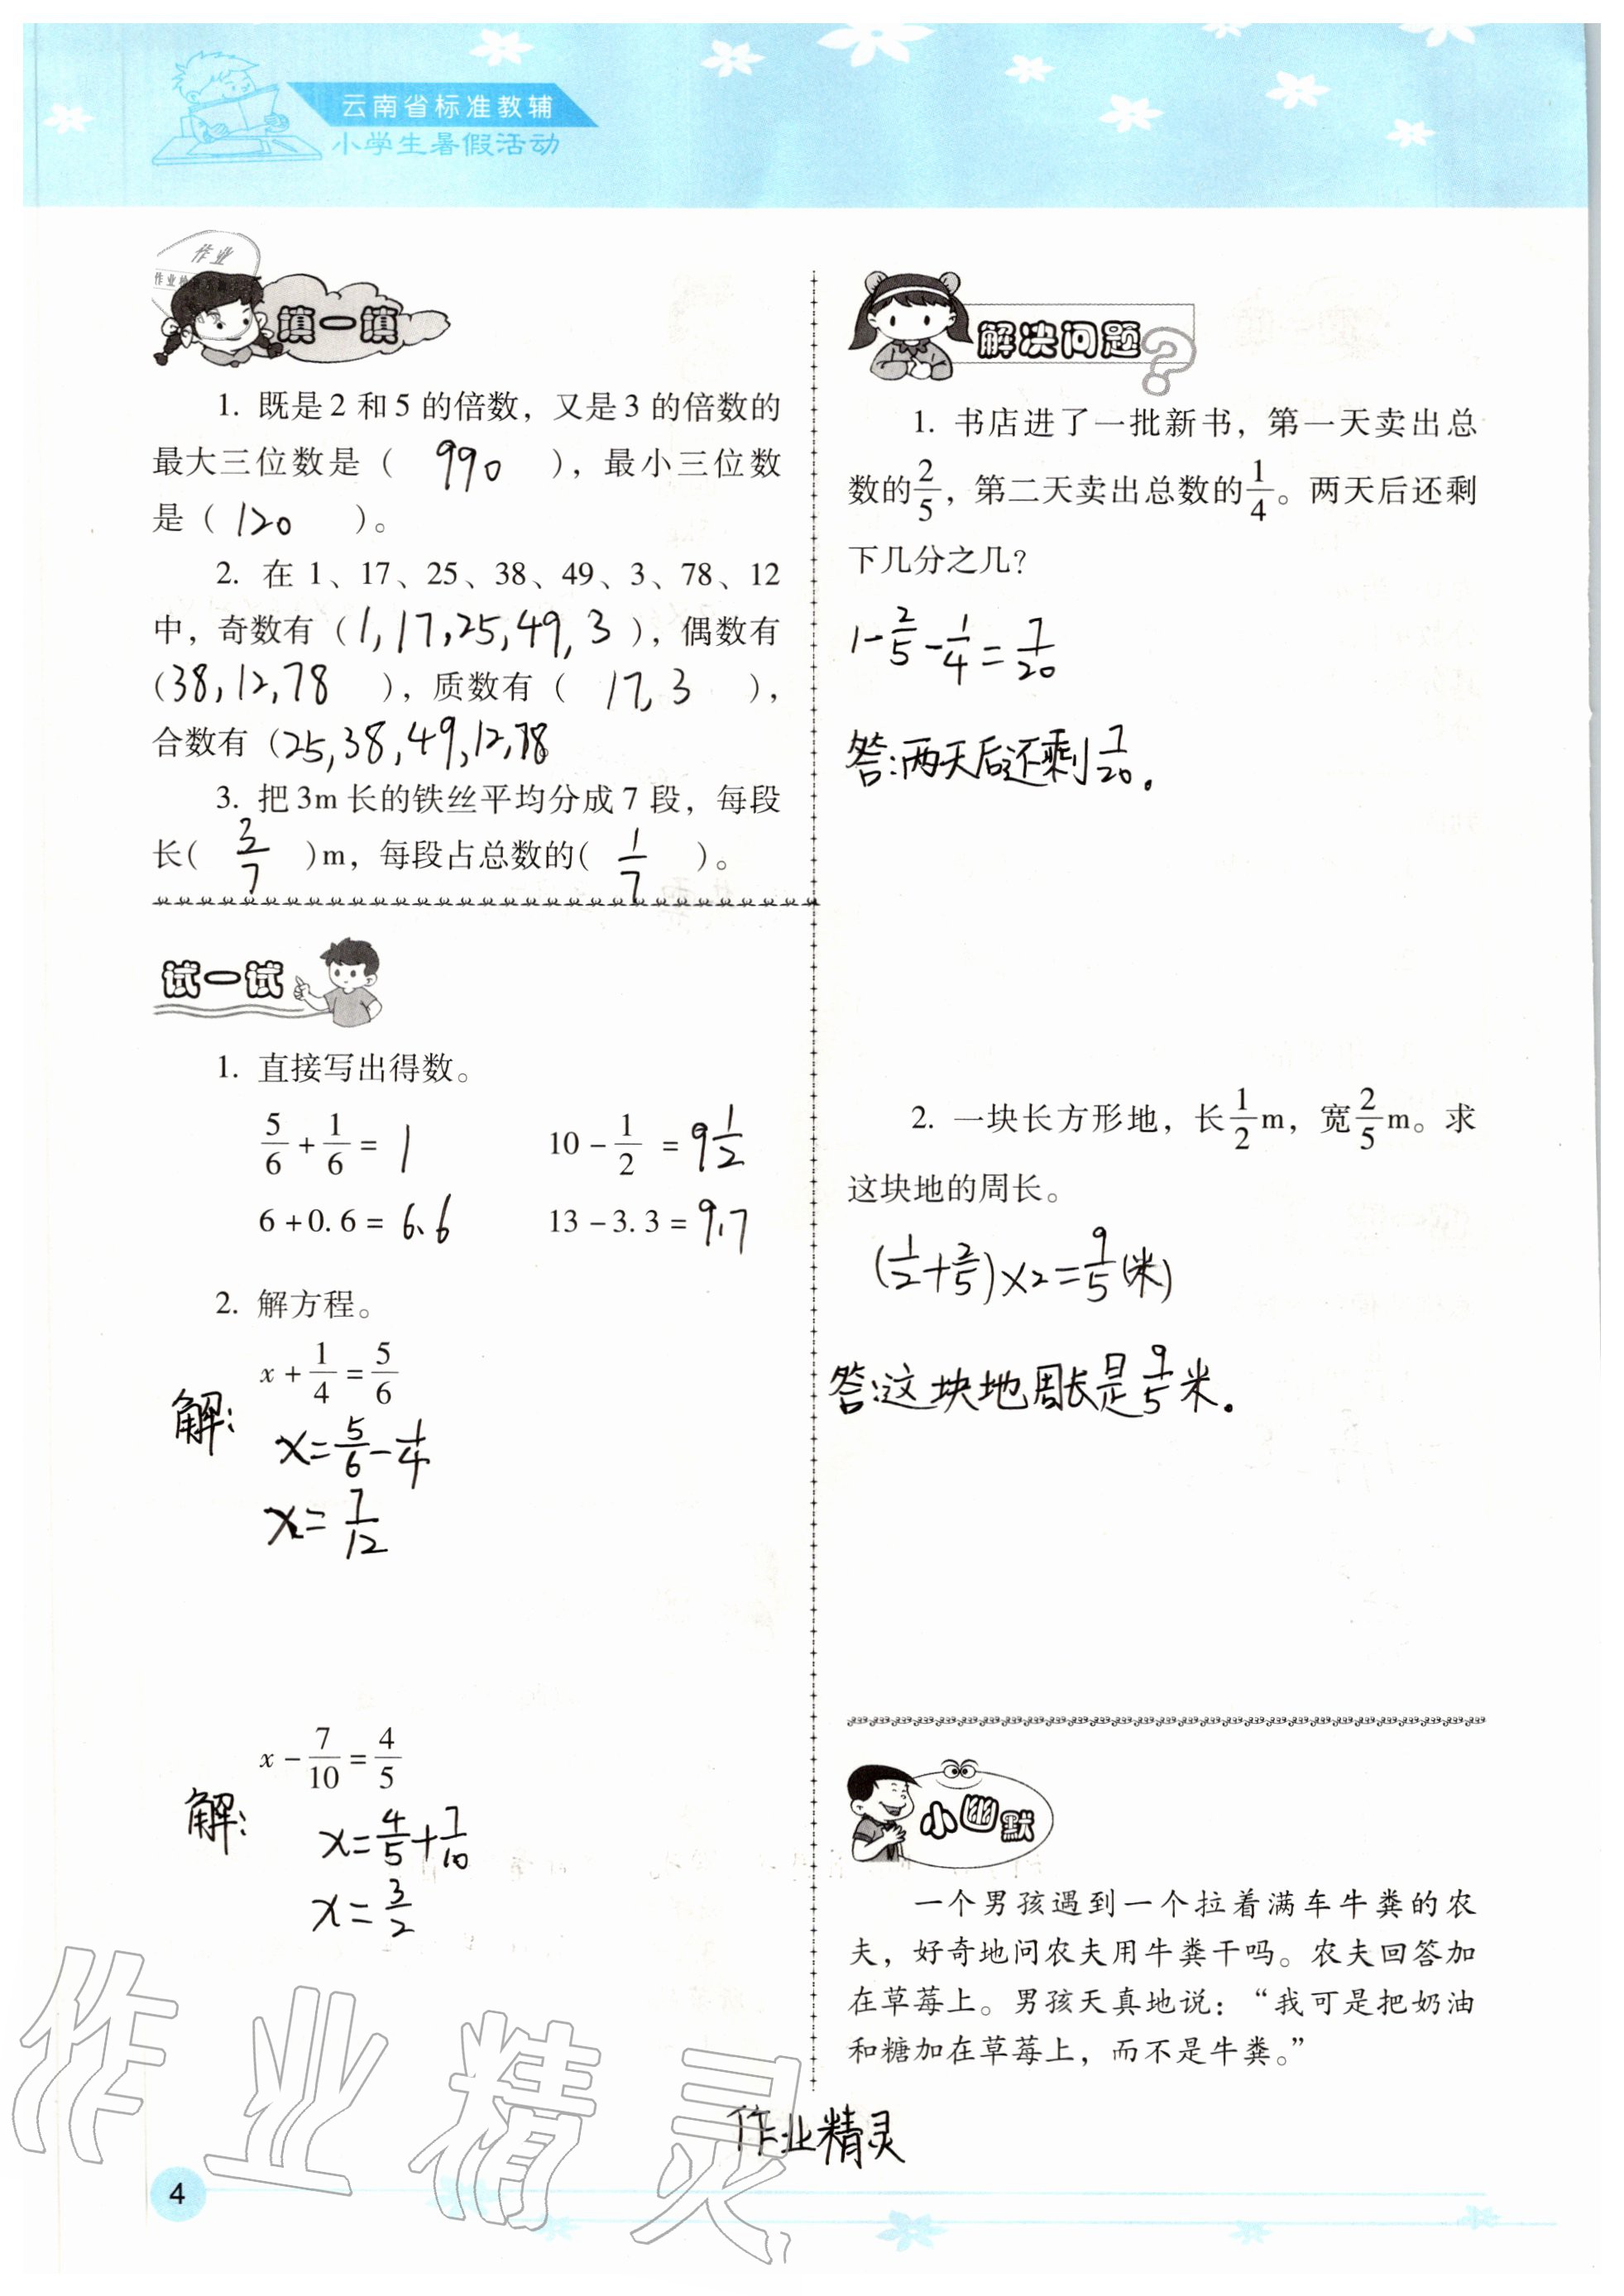 云南省标准教辅
小学生暑假活动
作业
填一填
1. 既是2和5的倍数，又是3的倍数的
最大三位数是（ 990 ），最小三位数
是（ 120 ）。
2. 在 1、17、25、38、49、3、78、12
中，奇数有（1,17,25,49,3），偶数有
(38,12,78 )，质数有（ 17,3 ），
合数有（25,38,49,12,78
3. 把3m长的铁丝平均分成7段，每段
长( 3/7 )m，每段占总数的( 1/7 )。
试一试
1. 直接写出得数。
5/6 + 1/6 = 1 10 − 1/2 = 9 1/2
6 + 0.6 = 6.6 13 − 3.3 = 9.7
2. 解方程。
x + 1/4 = 5/6
解：
x = 5/6 − 1/4
x = 7/12
x − 7/10 = 4/5
解：
x = 4/5 + 7/10
x = 3/2
解决问题？
1. 书店进了一批新书，第一天卖出总
数的2/5，第二天卖出总数的1/4。两天后还剩
下几分之几？
1 − 2/5 − 1/4 = 7/20
答：两天后还剩7/20。
2. 一块长方形地，长1/2m，宽2/5m。求
这块地的周长。
(1/2 + 2/5) × 2 = 9/5 (米)
答：这块地周长是9/5米。
小幽默
一个男孩遇到一个拉着满车牛粪的农
夫，好奇地问农夫用牛粪干吗。农夫回答加
在草莓上。男孩天真地说：“我可是把奶油
和糖加在草莓上，而不是牛粪。”
作业精灵
作业精灵
4